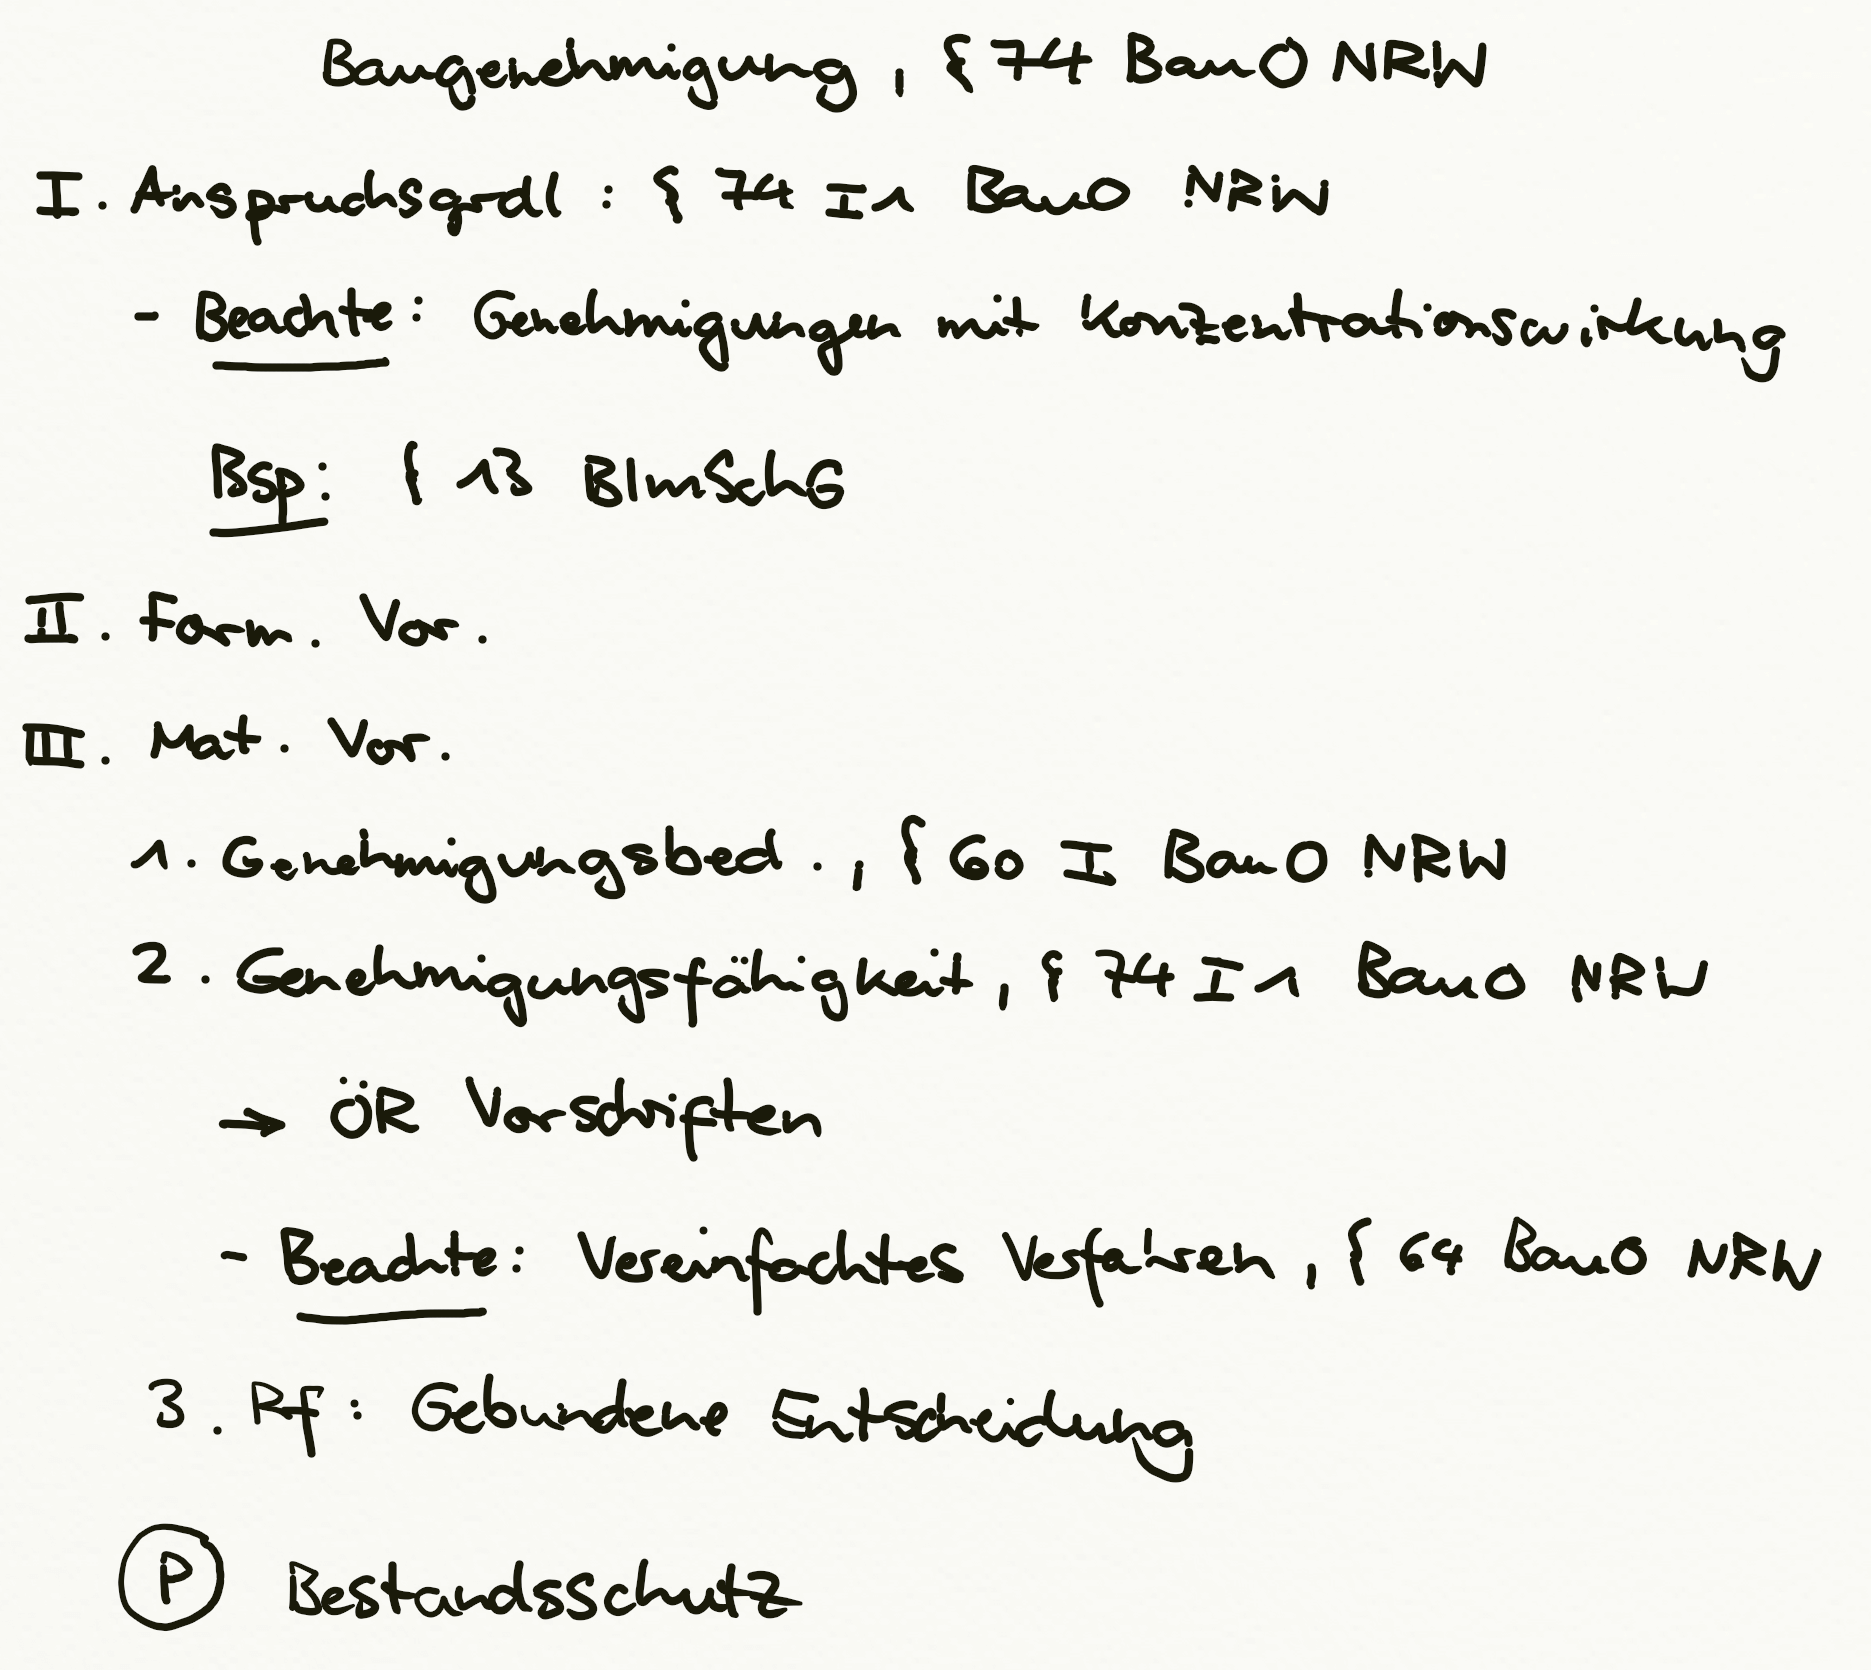 Baugenehmigung, § 74 BauO NRW
I. Anspruchsgrdl: § 74 I 1 BauO NRW
- Beachte: Genehmigungen mit Konzentrationswirkung
Bsp: § 13 BImSchG
II. Form. Vor.
III. Mat. Vor.
1. Genehmigungsbed., § 60 I BauO NRW
2. Genehmigungsfähigkeit, § 74 I 1 BauO NRW
→ ÖR Vorschriften
- Beachte: Vereinfachtes Verfahren, § 64 BauO NRW
3. Rf: Gebundene Entscheidung
P Bestandsschutz